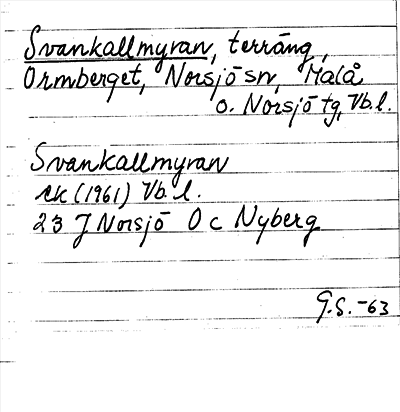 Svankallmyran, terräng,
Ormberget, Norsjö sn, Malå
o. Norsjö tg, Vb.l.
Svankallmyran
ek (1961) Vb.l.
23 J Norsjö O c Nyberg
G.S. -63